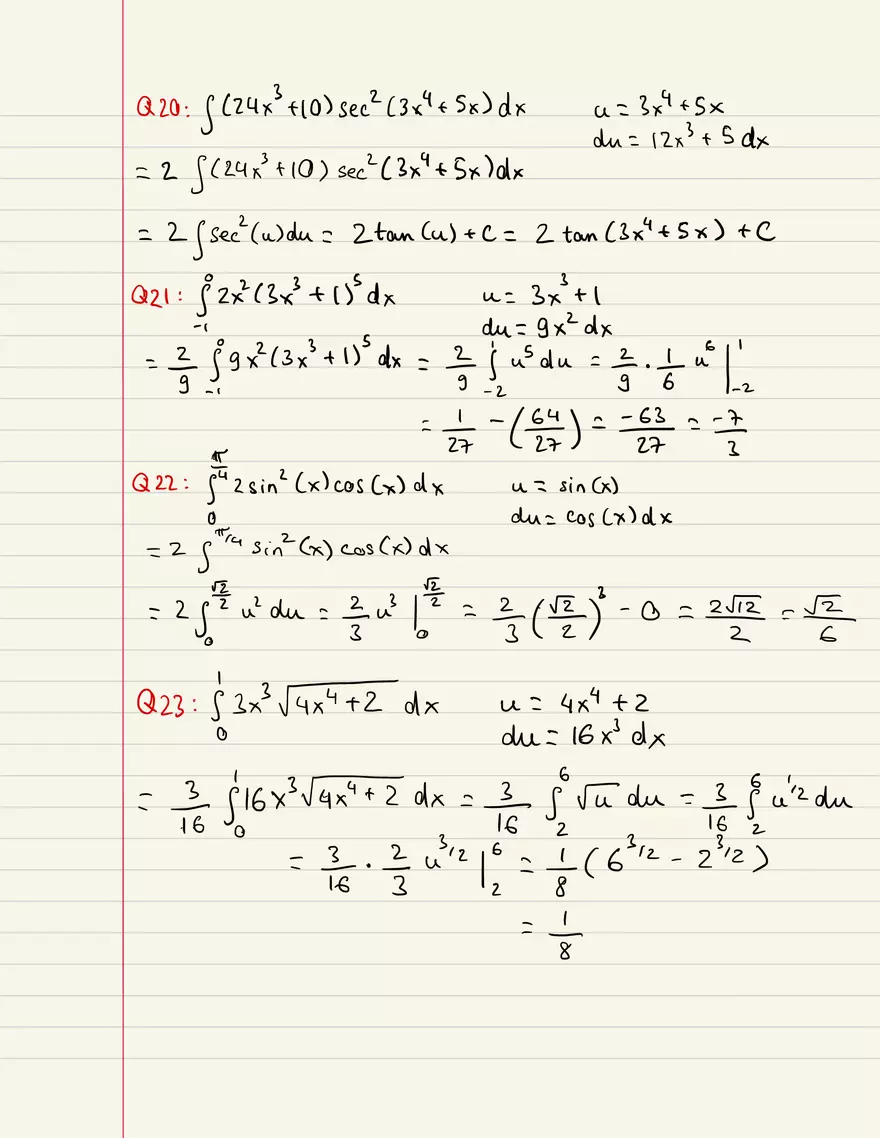 Q20: ∫(24x³+10)sec²(3x⁴+5x)dx u = 3x⁴+5x
du = 12x³+5 dx
= 2 ∫(24x³+10) sec²(3x⁴+5x)dx
= 2∫sec²(u)du = 2tan(u)+C = 2 tan(3x⁴+5x)+C
Q21: ∫₋₁⁰ 2x²(3x³+1)⁵dx u = 3x³+1
du = 9x² dx
= 2/9 ∫₋₁⁰ 9x²(3x³+1)⁵ dx = 2/9 ∫₋₂¹ u⁵ du = 2/9 · 1/6 u⁶ |₋₂¹
= 1/27 - (64/27) = -63/27 = -7/3
Q22: ∫₀^(π/4) 2sin²(x)cos(x)dx u = sin(x)
du = cos(x)dx
= 2 ∫^(π/4) sin²(x)cos(x)dx
= 2∫₀^(√2/2) u² du = 2/3 u³ |₀^(√2/2) = 2/3 (√2/2)³ - 0 = 2√12/2 = √2/6
Q23: ∫₀¹ 3x³√(4x⁴+2) dx u = 4x⁴+2
du = 16x³ dx
= 3/16 ∫₀¹ 16x³√(4x⁴+2) dx = 3/16 ∫₂⁶ √u du = 3/16 ∫₂⁶ u^(1/2) du
= 3/16 · 2/3 u^(3/2) |₂⁶ = 1/8 (6^(3/2) - 2^(3/2))
= 1/8